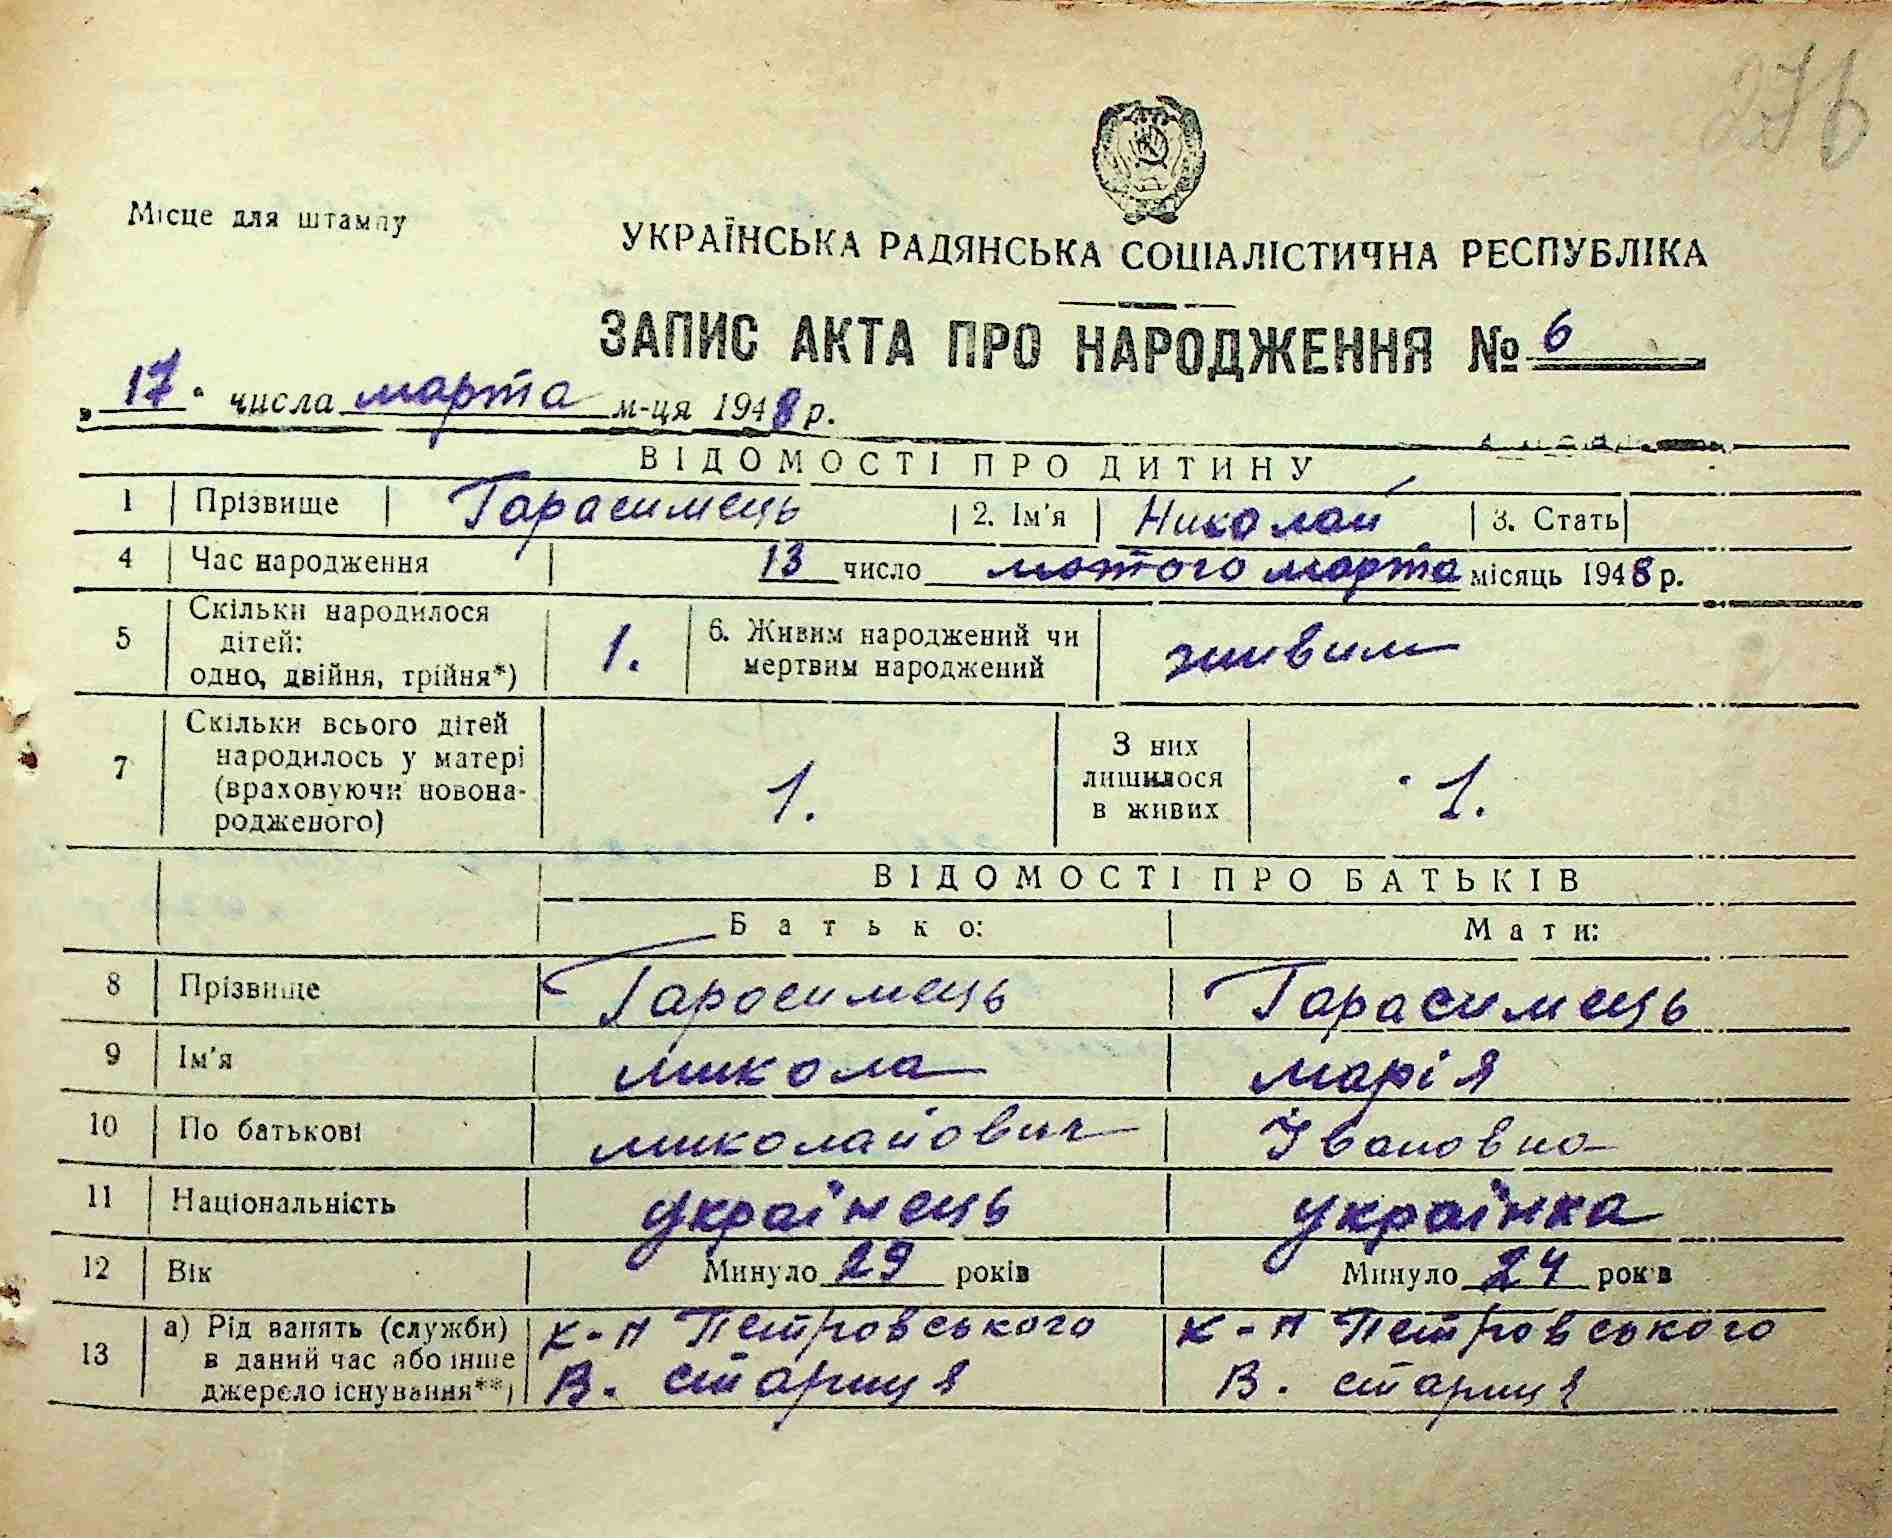 276
Місце для штампу
УКРАЇНСЬКА РАДЯНСЬКА СОЦІАЛІСТИЧНА РЕСПУБЛІКА
ЗАПИС АКТА ПРО НАРОДЖЕННЯ № 6
„17" числа марта м-ця 1948 р.
ВІДОМОСТІ ПРО ДИТИНУ
1 Прізвище Тарасимець 2. Ім'я Николай 3. Стать
4 Час народження 13 число лютого марта місяць 1948 р.
5 Скільки народилося дітей: одно, двійня, трійня*) 1. 6. Живим народжений чи мертвим народжений живим
7 Скільки всього дітей народилось у матері (враховуючи новонародженого) 1. З них лишилося в живих 1.
ВІДОМОСТІ ПРО БАТЬКІВ
Батько: Мати:
8 Прізвище Тарасимець Тарасимець
9 Ім'я Микола Марія
10 По батькові Миколайович Івановна
11 Національність українець українка
12 Вік Минуло 29 років Минуло 24 років
13 а) Рід занять (служби) в даний час або інше джерело існування**) к-п Петровського В. стариця к-п Петровського В. стариця